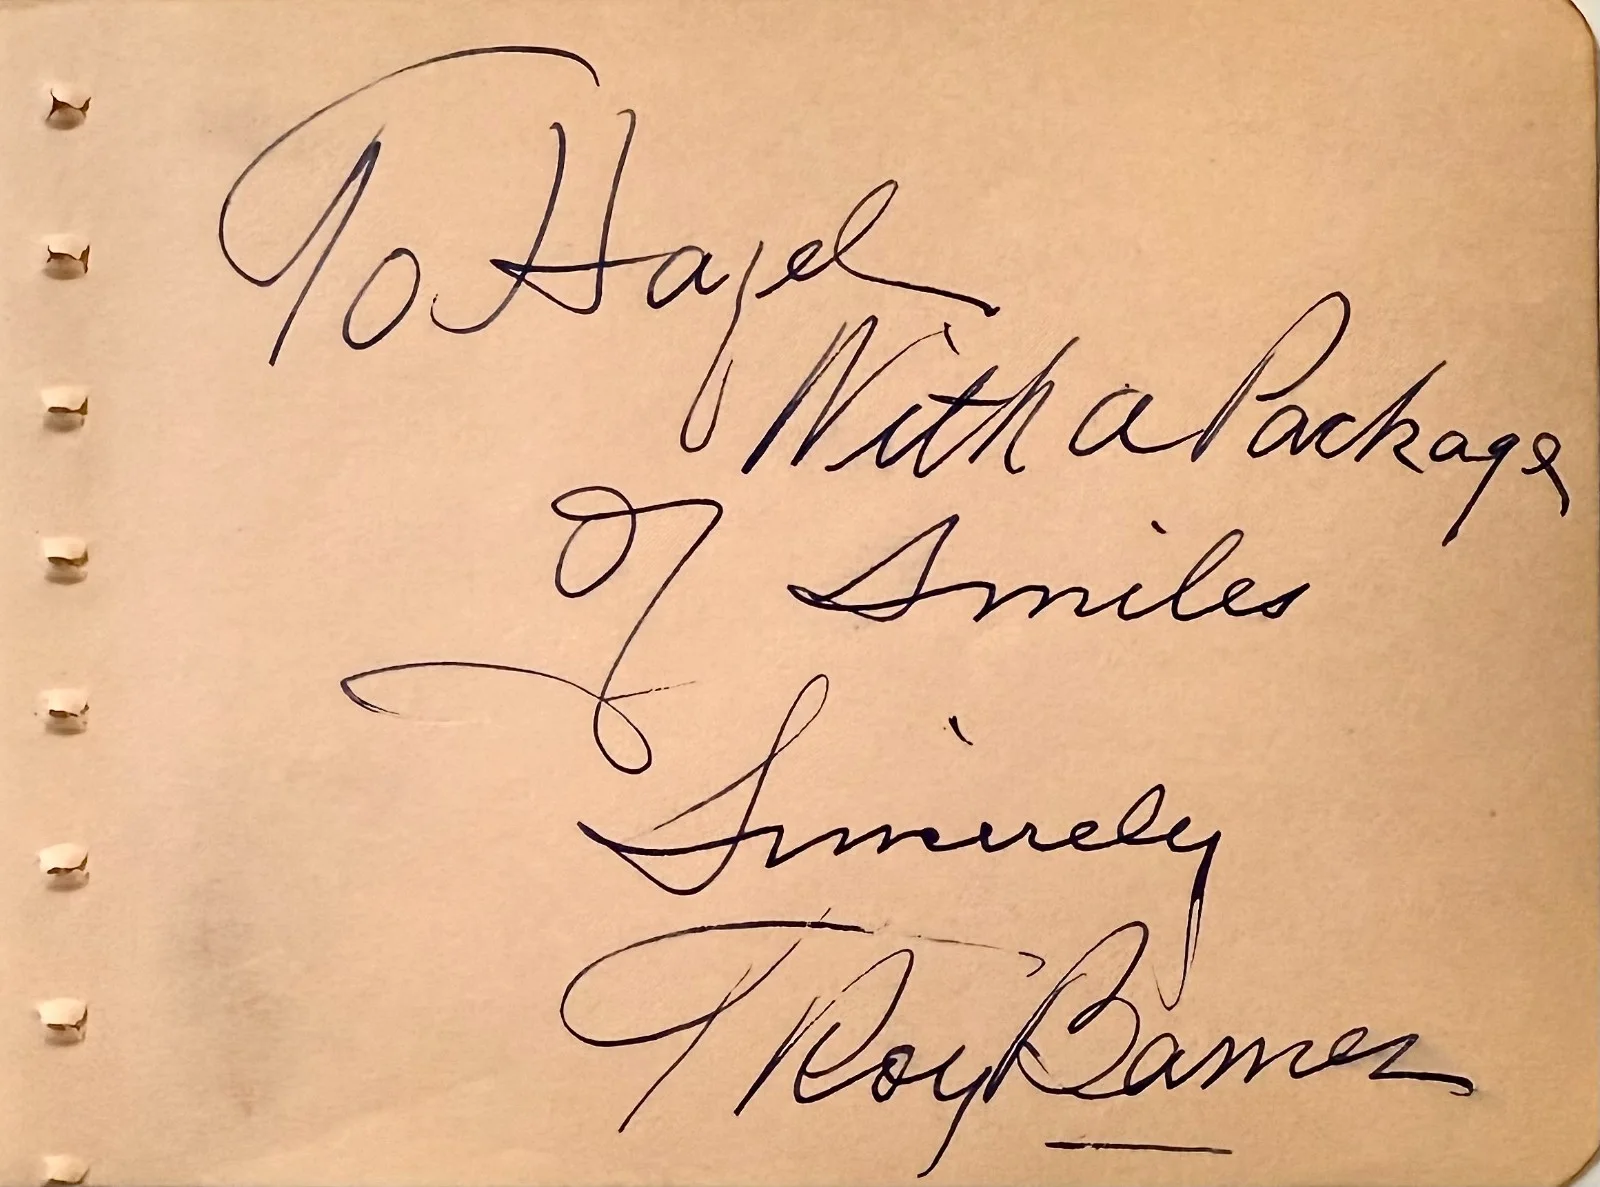 To Hazel
With a Package
Of Smiles
Sincerely
T Roy Barnes